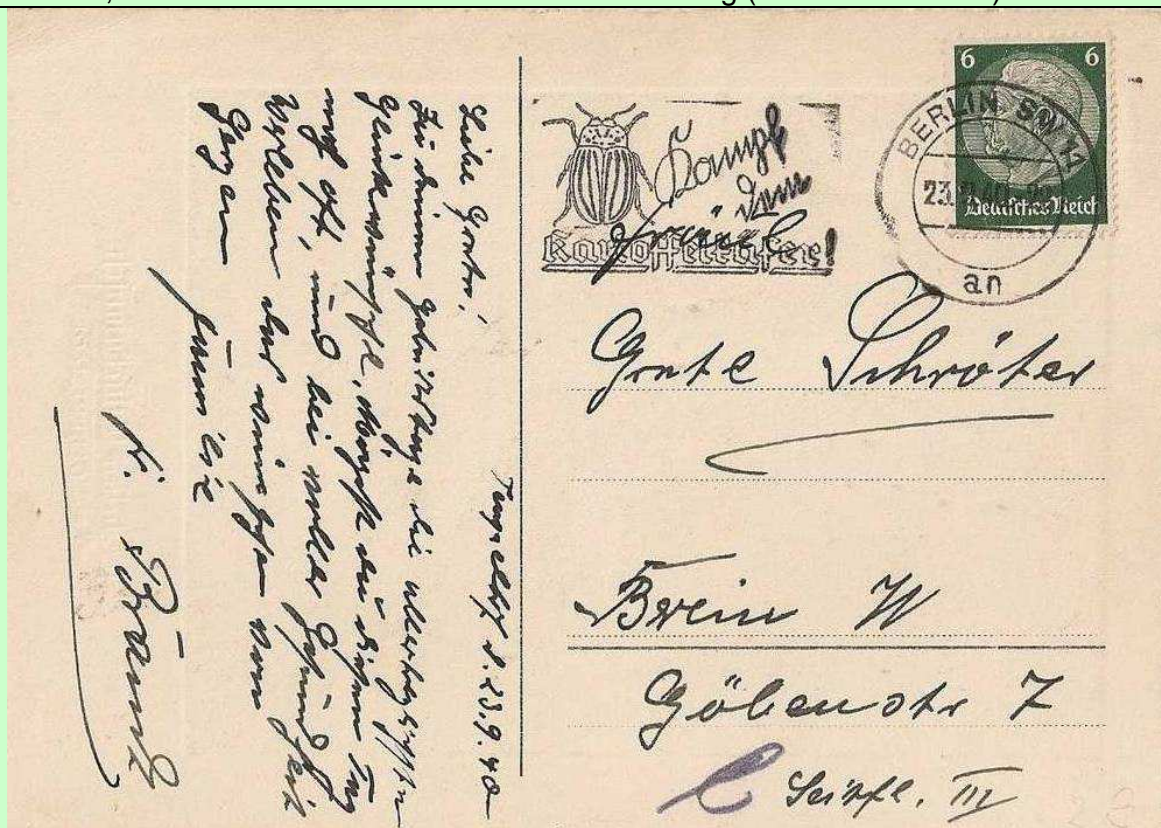 6 6
Deutsches Reich
BERLIN SW 11
23.
an
Kampf
dem
Kartoffelkäfer!
Fräul.
Grete Schröter
Berlin W
Göbenstr 7
Seitfl. III
Tempelhof d. 23.9.40
Liebe Grete!
Zu deinem Geburtstage die allerherzlichsten
Glückwünsche. Mögest du diesen Tag
noch oft, und bei voller Gesundheit
verleben das wünschen von
Herzen
Familie